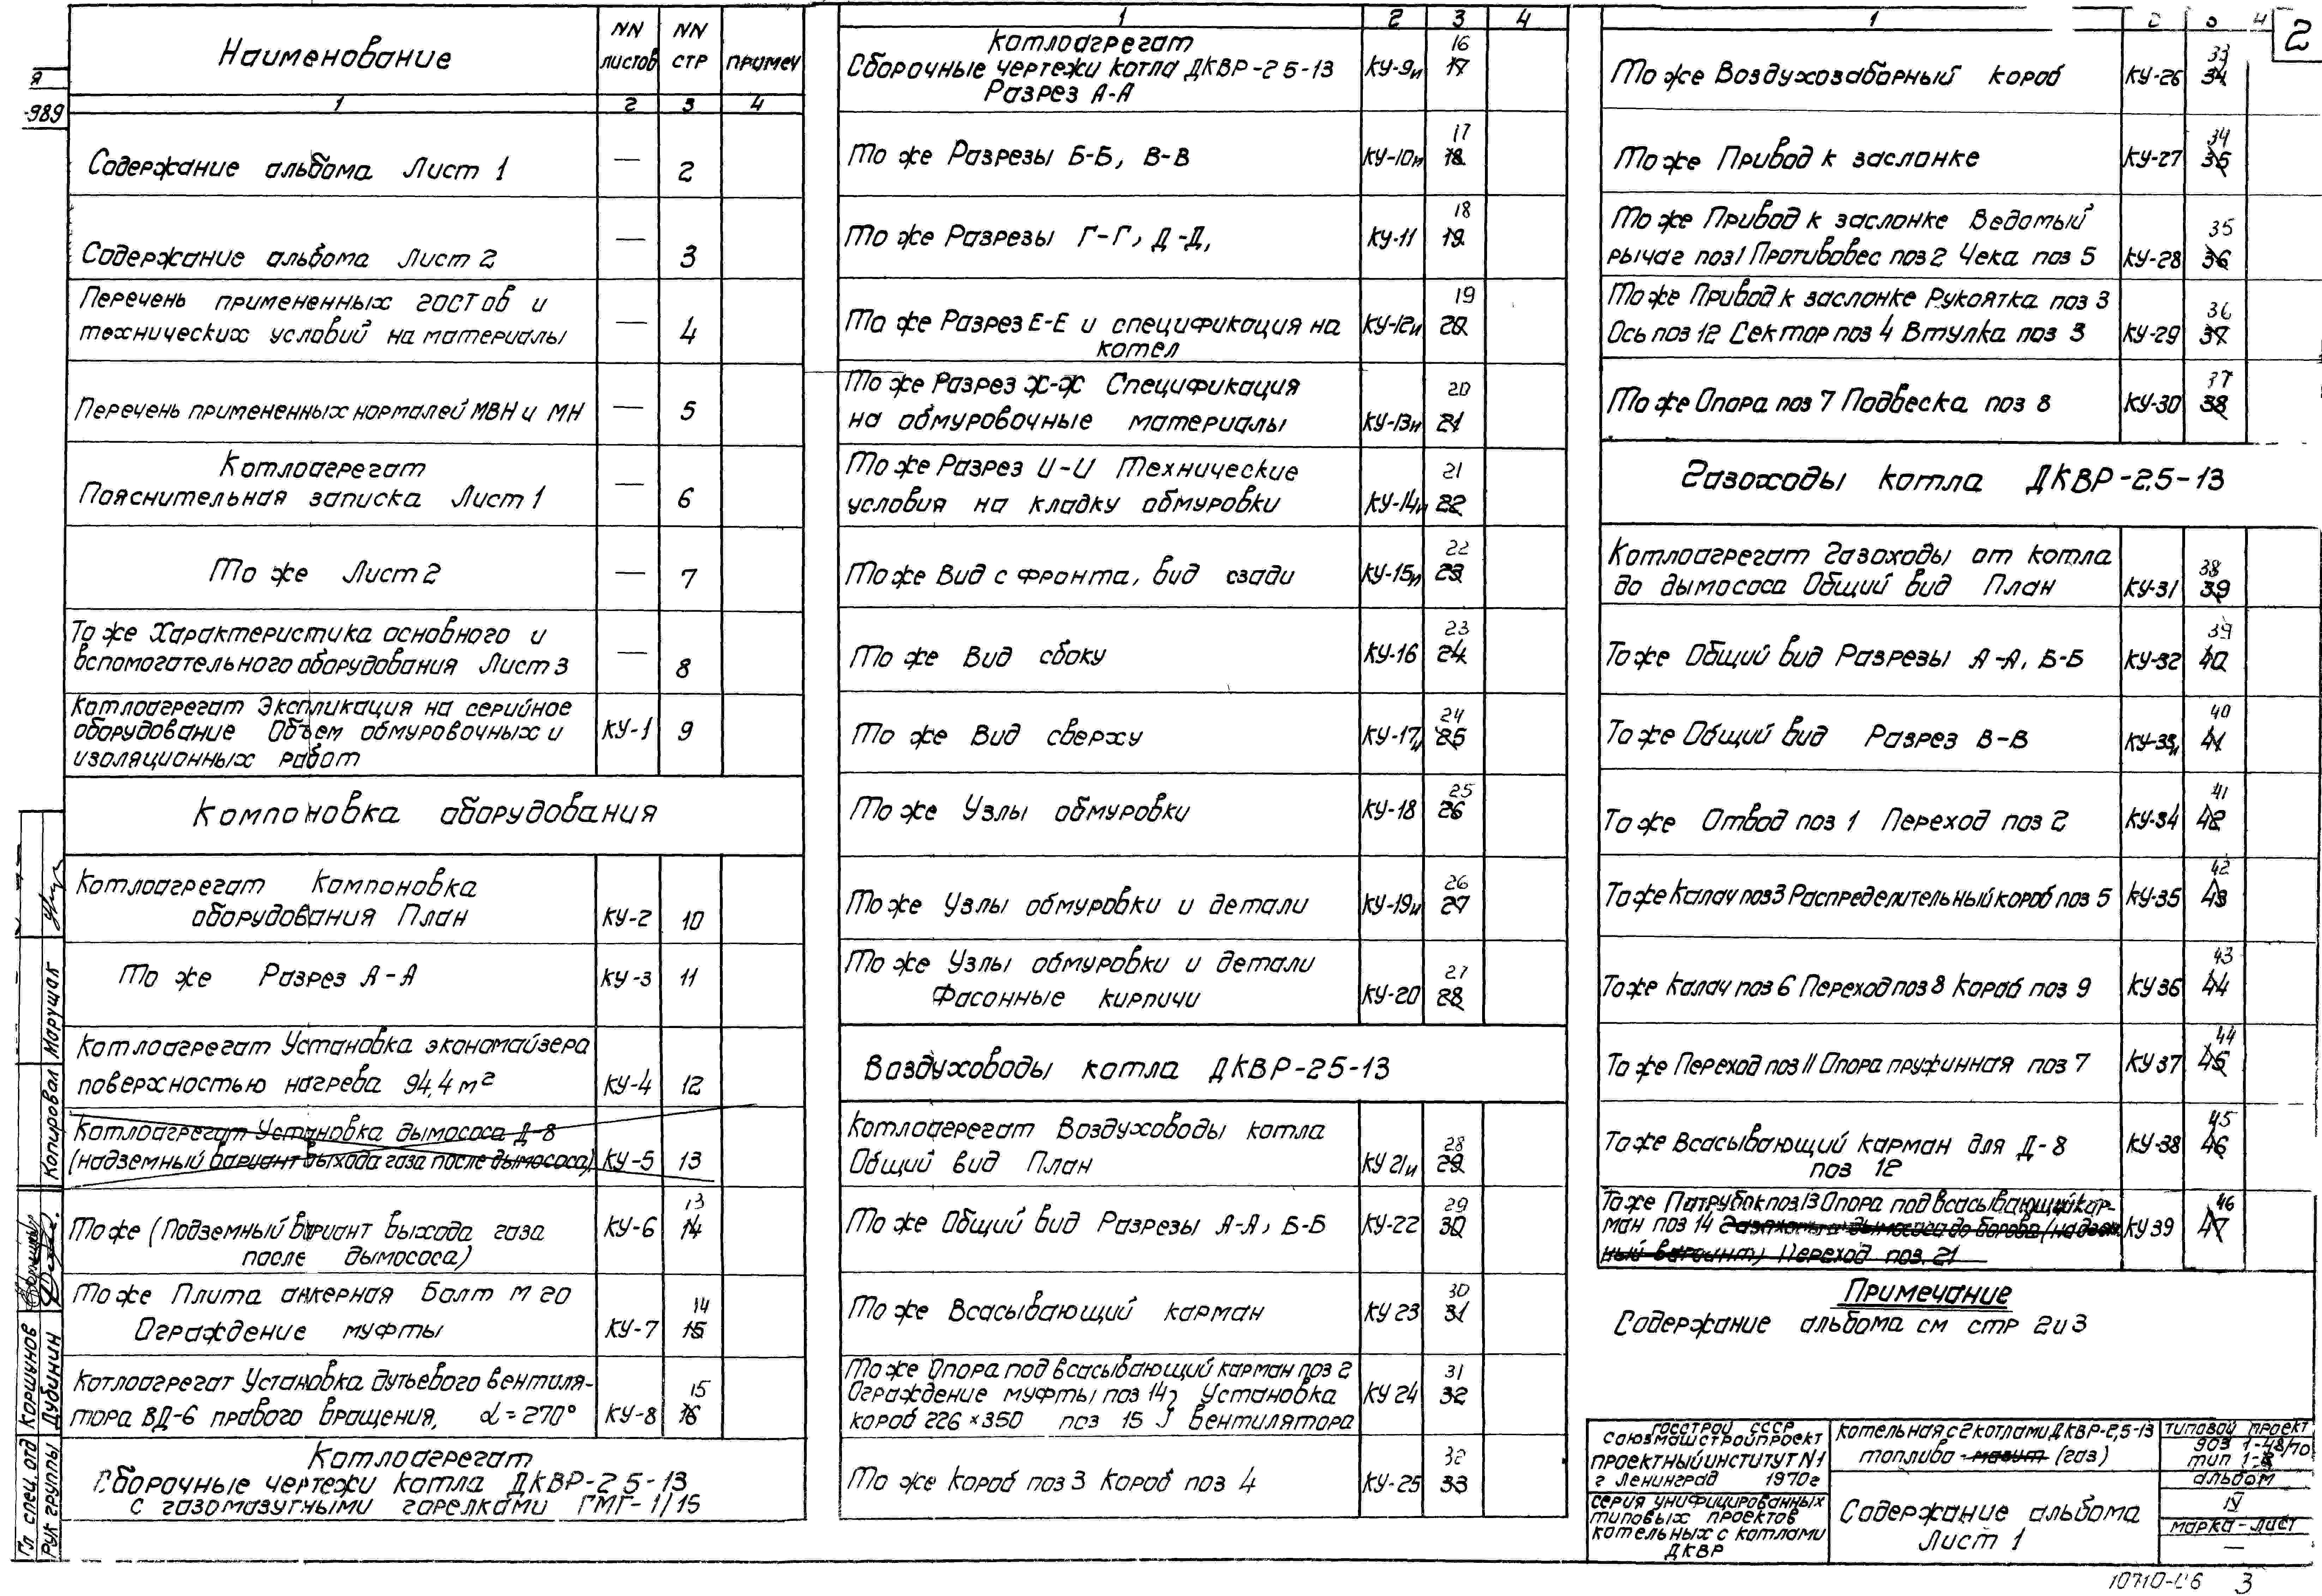 2
я
-989
Наименование
NN листов
NN стр
примеч
1 2 3 4
Содержание альбома Лист 1 — 2
Содержание альбома Лист 2 — 3
Перечень примененных гостов и
технических условий на материалы — 4
Перечень примененных нормалей МВН и МН — 5
Котлоагрегат
Пояснительная записка Лист 1 — 6
То же Лист 2 — 7
То же Характеристика основного и
вспомогательного оборудования Лист 3 — 8
Котлоагрегат Экспликация на серийное
оборудование Объем обмуровочных и КУ-1 9
изоляционных работ
Компоновка оборудования
Котлоагрегат Компоновка
оборудования План КУ-2 10
То же Разрез А-А КУ-3 11
Котлоагрегат Установка экономайзера
поверхностью нагрева 94,4 м² КУ-4 12
Котлоагрегат Установка дымососа Д-8
(надземный вариант выхода газа после дымососа) КУ-5 13
13
То же (Подземный вариант выхода газа КУ-6 14
после дымососа)
То же Плита анкерная Болт М 20 14
Ограждение муфты КУ-7 15
Котлоагрегат Установка дутьевого вентиля- 15
тора ВД-6 правого вращения, α=270° КУ-8 16
Котлоагрегат
Сборочные чертежи котла ДКВР-2 5-13
с газомазутными горелками ГМГ-1/15
1 2 3 4
Котлоагрегат 16
Сборочные чертежи котла ДКВР-2 5-13 КУ-9и 17
Разрез А-А
17
То же Разрезы Б-Б, В-В КУ-10и 18
18
То же Разрезы Г-Г, Д-Д, КУ-11 19
19
То же Разрез Е-Е и спецификация на КУ-12и 20
котел
То же Разрез Ж-Ж Спецификация 20
на обмуровочные материалы КУ-13и 21
То же Разрез И-И Технические 21
условия на кладку обмуровки КУ-14и 22
22
То же Вид с фронта, вид сзади КУ-15и 23
23
То же Вид сбоку КУ-16 24
24
То же Вид сверху КУ-17и 25
25
То же Узлы обмуровки КУ-18 26
26
То же Узлы обмуровки и детали КУ-19и 27
То же Узлы обмуровки и детали 27
Фасонные кирпичи КУ-20 28
Воздуховоды котла ДКВР-2 5-13
Котлоагрегат Воздуховоды котла 28
Общий вид План КУ 21и 29
29
То же Общий вид Разрезы А-А, Б-Б КУ-22 30
30
То же Всасывающий карман КУ 23 31
То же Опора под всасывающий карман поз 2 31
Ограждение муфты поз 14} Установка КУ 24 32
короб 226×350 поз 15 } вентилятора
32
То же Короб поз 3 Короб поз 4 КУ-25 33
1 2 3 4
33
То же Воздухозаборный короб КУ-26 34
34
То же Привод к заслонке КУ-27 35
То же Привод к заслонке Ведомый 35
рычаг поз 1 Противовес поз 2 Чека поз 5 КУ-28 36
То же Привод к заслонке Рукоятка поз 3 36
Ось поз 12 Сектор поз 4 Втулка поз 3 КУ-29 37
37
То же Опора поз 7 Подвеска поз 8 КУ-30 38
Газоходы котла ДКВР-2.5-13
Котлоагрегат Газоходы от котла 38
до дымососа Общий вид План КУ-31 39
39
То же Общий вид Разрезы А-А, Б-Б КУ-32 40
40
То же Общий вид Разрез В-В КУ-33и 41
41
То же Отвод поз 1 Переход поз 2 КУ-34 42
42
То же Калач поз 3 Распределительный короб поз 5 КУ-35 43
43
То же Калач поз 6 Переход поз 8 Короб поз 9 КУ 36 44
44
То же Переход поз 11 Опора пружинная поз 7 КУ 37 45
45
То же Всасывающий карман для Д-8 КУ-38 46
поз 12
То же Патрубок поз.13 Опора под всасывающий кар- 46
ман поз 14 Газоходы от дымососа до борова (надзем- КУ 39 47
ный вариант) Переход поз. 21
Примечание
Содержание альбома см стр 2 и 3
Госстрой СССР
Союзмашстройпроект
Проектный институт N1
г Ленинград 1970г
Серия унифицированных
типовых проектов
котельных с котлами
ДКВР
Котельная с 2 котлами ДКВР-2,5-13
топливо - мазут (газ)
Содержание альбома
Лист 1
Типовой проект
903 1-48/70
тип 1-
альбом
IV
марка-лист
—
Гл спец. отд Коршунов
Рук группы Дубинин
Копировал Марущак
3